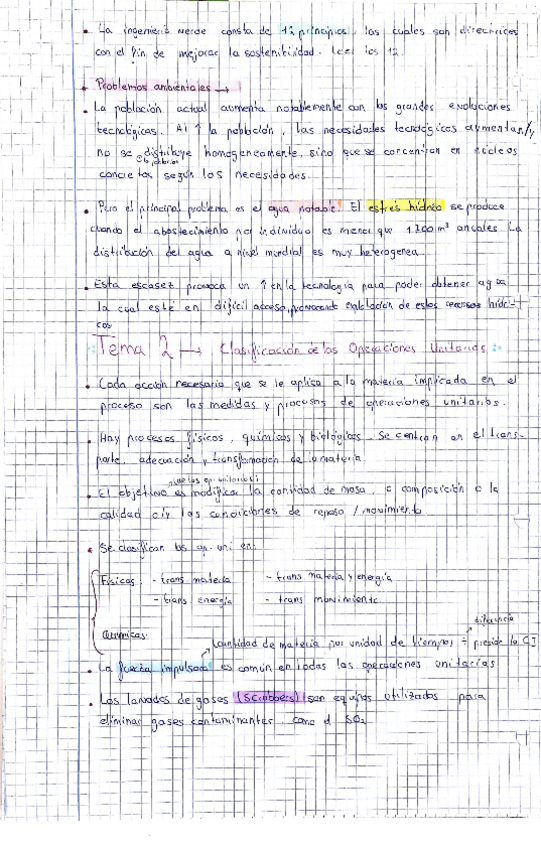 • La ingeniería verde consta de 12 principios, los cuales son directrices
con el fin de mejorar la sostenibilidad. Leer los 12.
• Problemas ambientales →
• La población actual aumenta notablemente con las grandes evoluciones
tecnológicas. Al ↑ la población, las necesidades tecnológicas aumentan, y
no se distribuye homogeneamente, sino que se concentran en núcleos
concretos según las necesidades.
• Pero el principal problema es el agua potable. El estrés hídrico se produce
cuando el abastecimiento por individuo es menor que 1700 m³ anuales. La
distribución del agua a nivel mundial es muy heterogenea.
• Esta escasez provoca un ↑ en la tecnología para poder obtener agua
la cual esté en difícil acceso, provocando explotación de estos recursos hídri-
cos
Tema 2 → Clasificación de las Operaciones Unitarias
• Cada acción necesaria que se le aplica a la materia implicada en el
proceso son las medidas y procesos de operaciones unitarias.
• Hay procesos físicos, químicos y biológicos. Se centran en el trans-
porte, adecuación y transformación de la materia.
• El objetivo es modificar la cantidad de masa, o composición o la
calidad o/y las condiciones de reposo / movimiento
• Se clasifican las op. uni en:
Físicas: - trans materia - trans materia y energía
- trans energía - trans movimiento
Químicas:
diferencia
cantidad de materia por unidad de tiempo
• La fuerza impulsora es común en todas las operaciones unitarias
• Los lavados de gases (Scrubbers) son equipos utilizados para
eliminar gases contaminantes, como el SO₂